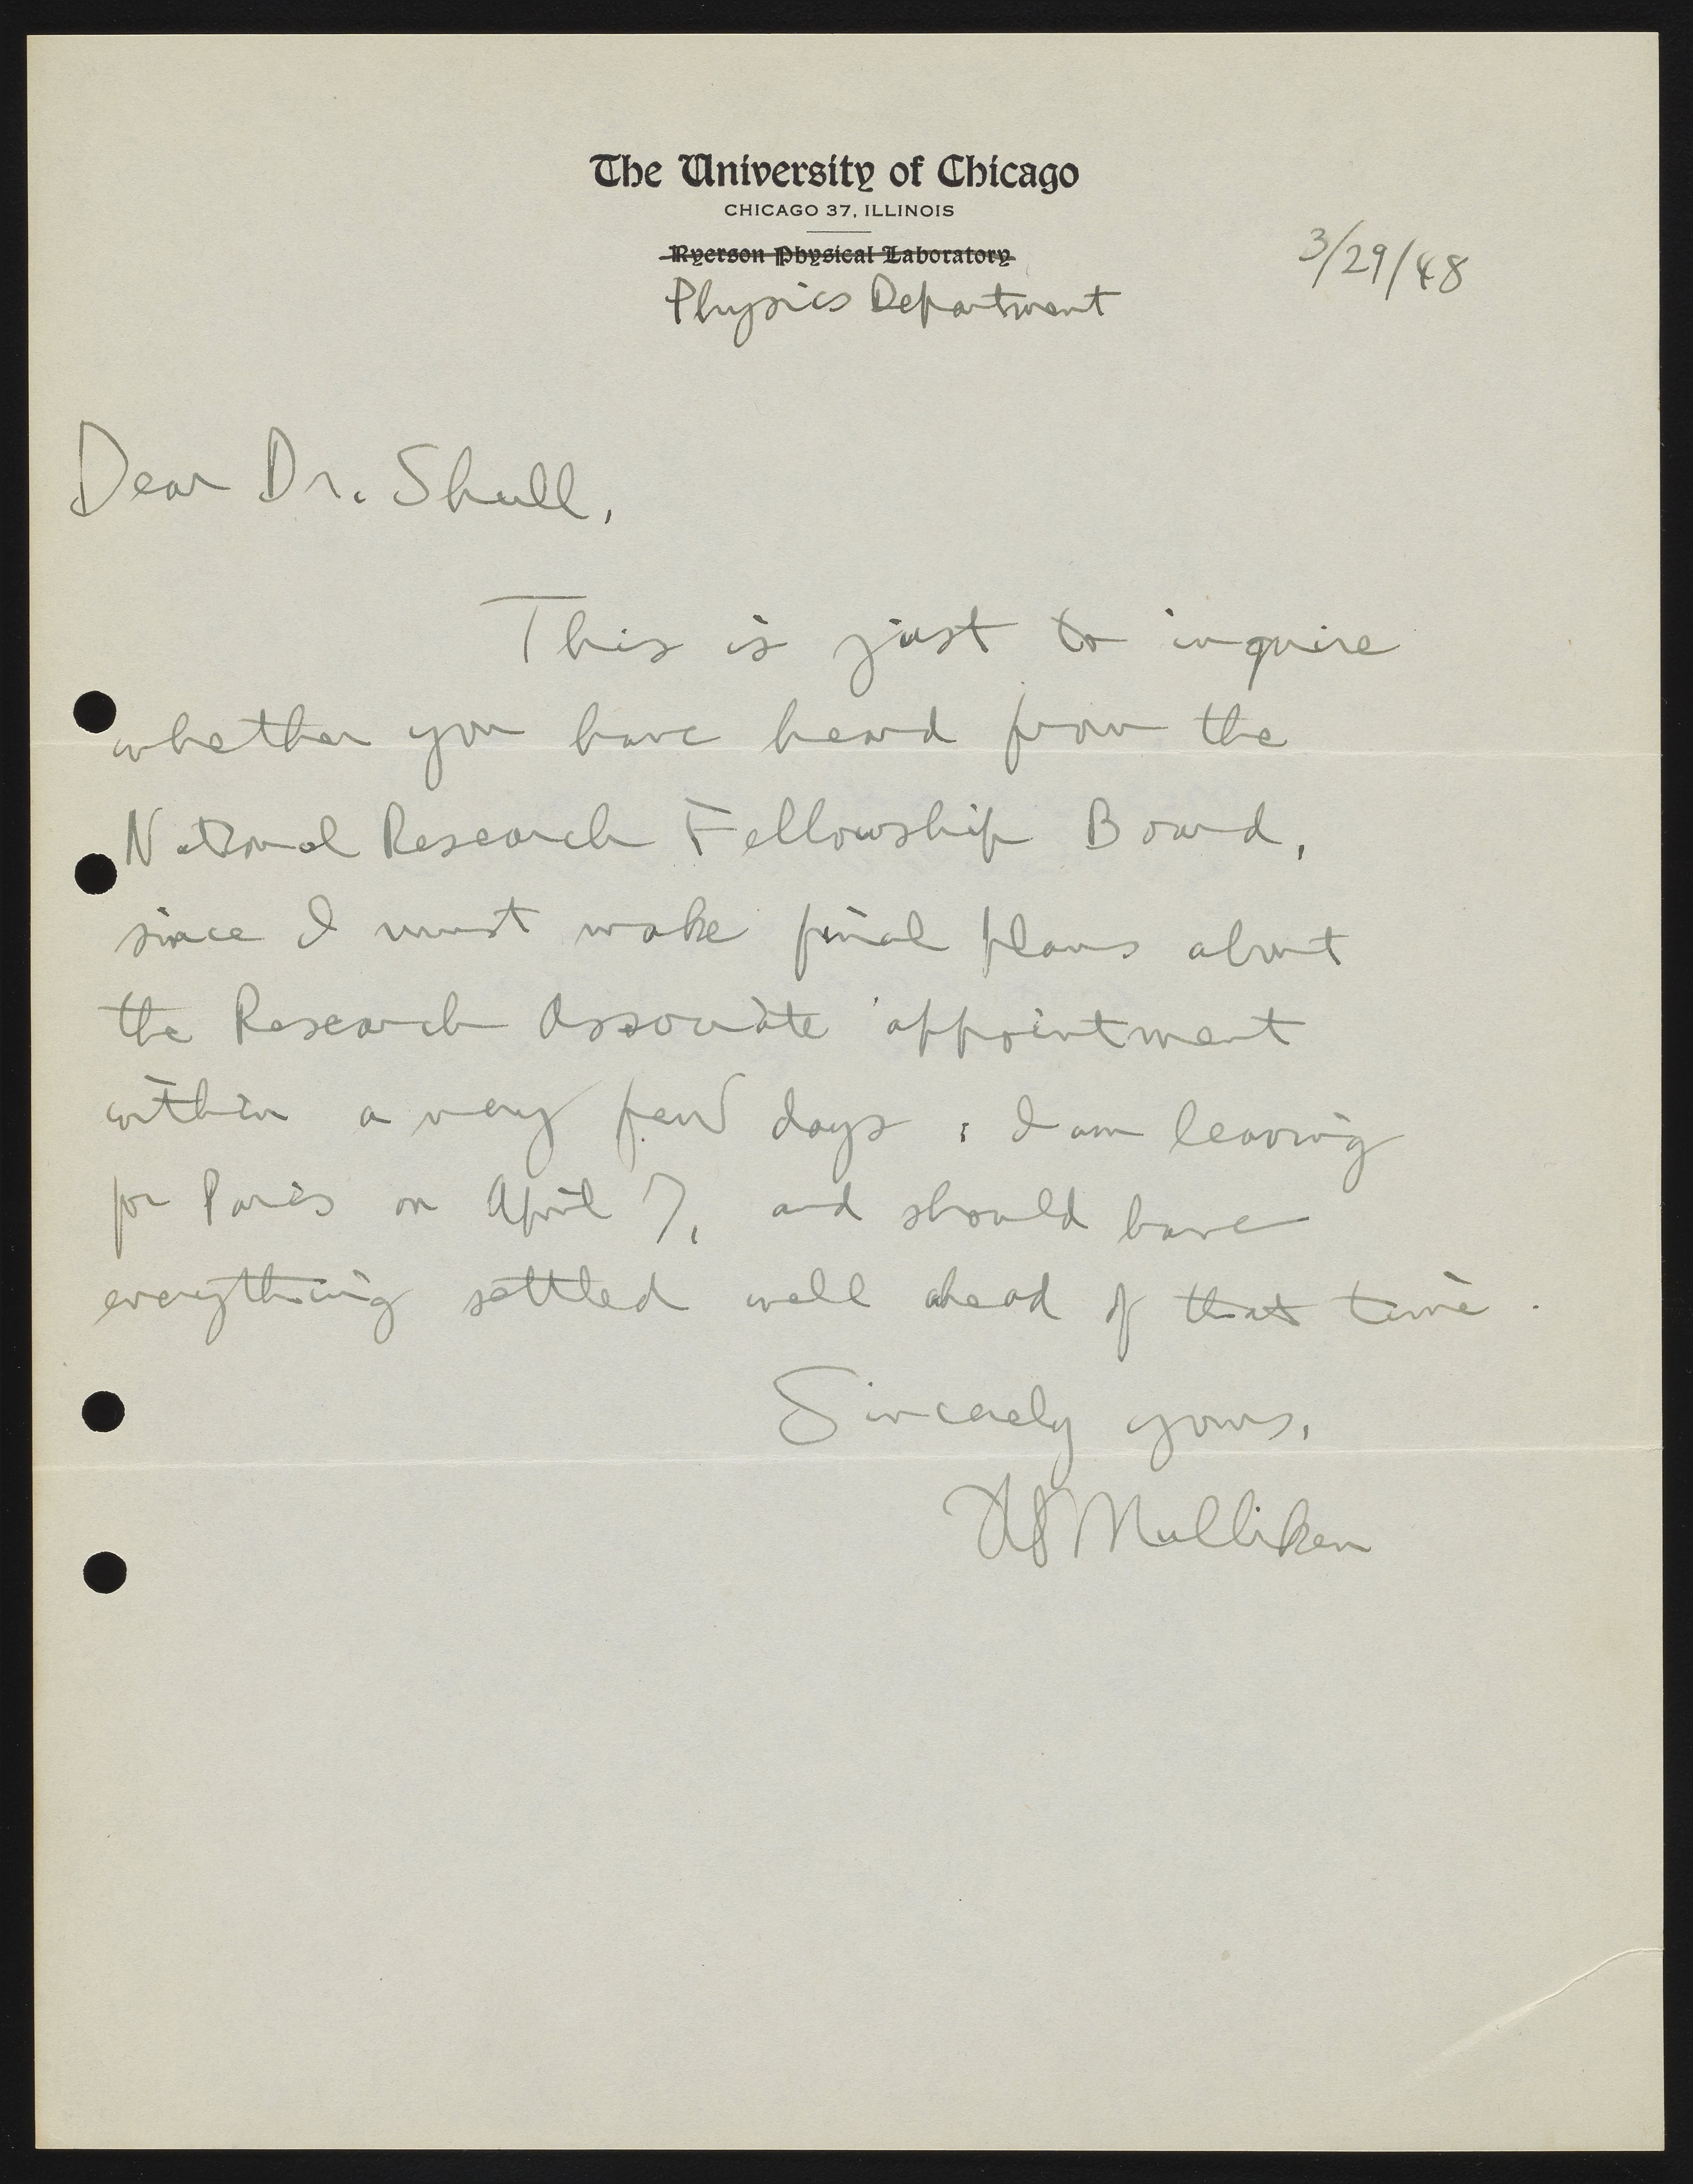 The University of Chicago
CHICAGO 37, ILLINOIS
Ryerson Physical Laboratory
Physics Department
3/29/48
Dear Dr. Shull,
This is just to inquire
whether you have heard from the
National Research Fellowship Board,
since I must make final plans about
the Research Associate appointment
within a very few days; I am leaving
for Paris on April 7, and should have
everything settled well ahead of that time.
Sincerely yours,
RS Mulliken